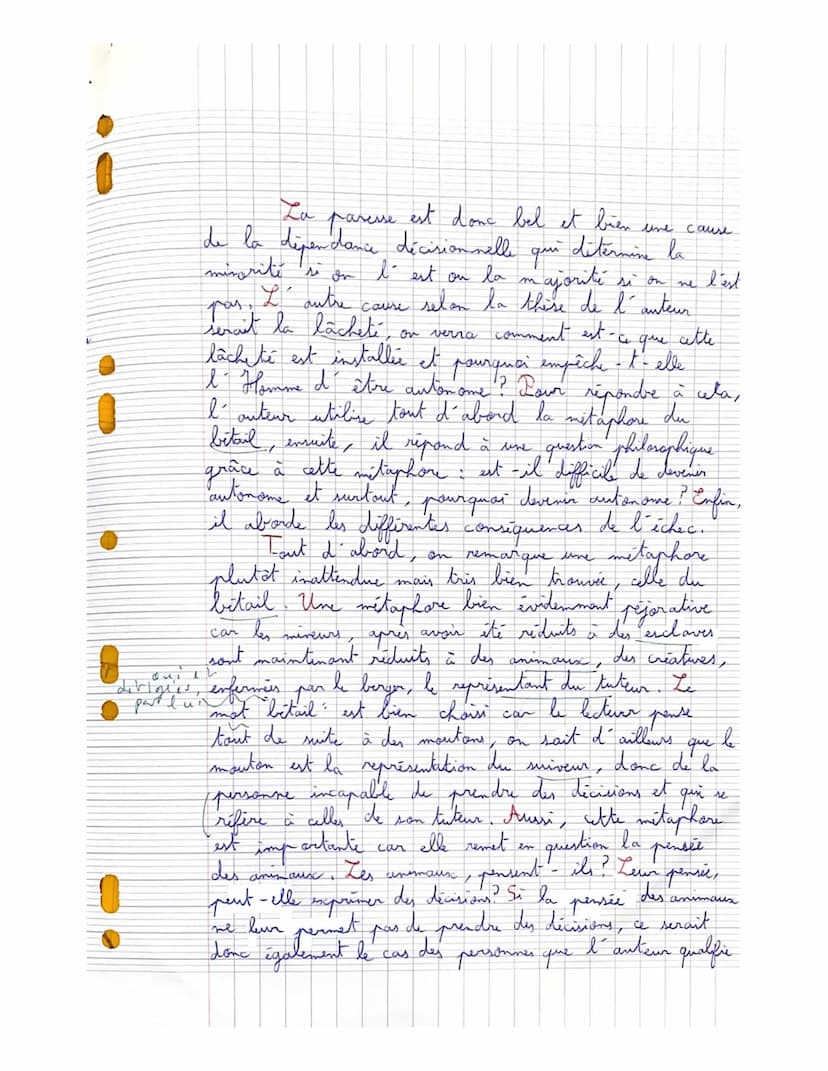 La paresse est donc bel et bien une cause
de la dépendance décisionnelle qui détermine la
minorité si on l'est ou la majorité si on ne l'est
pas. L'autre cause selon la thèse de l'auteur
serait la lâcheté, on verra comment est-ce que cette
lâcheté est installée et pourquoi empêche-t-elle
l'Homme d'être autonome ? Pour répondre à cela,
l'auteur utilise tout d'abord la métaphore du
bétail, ensuite, il répond à une question philosophique
grâce à cette métaphore : est-il difficile de devenir
autonome et surtout, pourquoi devenir autonome ? Enfin,
il aborde les différentes conséquences de l'échec.
Tout d'abord, on remarque une métaphore
plutôt inattendue mais très bien trouvée, celle du
bétail. Une métaphore bien évidemment péjorative
car les mineurs, après avoir été réduits à des esclaves
sont maintenant réduits à des animaux, des créatures,
oui et
dirigées
par lui
enfermées par le berger, le représentant du tuteur. Le
mot "bétail" est bien choisi car le lecteur pense
tout de suite à des moutons, on sait d'ailleurs que le
mouton est la représentation du suiveur, donc de la
personne incapable de prendre des décisions et qui se
réfère à celles de son tuteur. Aussi, cette métaphore
est importante car elle remet en question la pensée
des animaux. Les animaux, pensent-ils ? Leur pensée,
peut-elle exprimer des décisions ? Si la pensée des animaux
ne leur permet pas de prendre des décisions, ce serait
donc également le cas des personnes que l'auteur qualifie